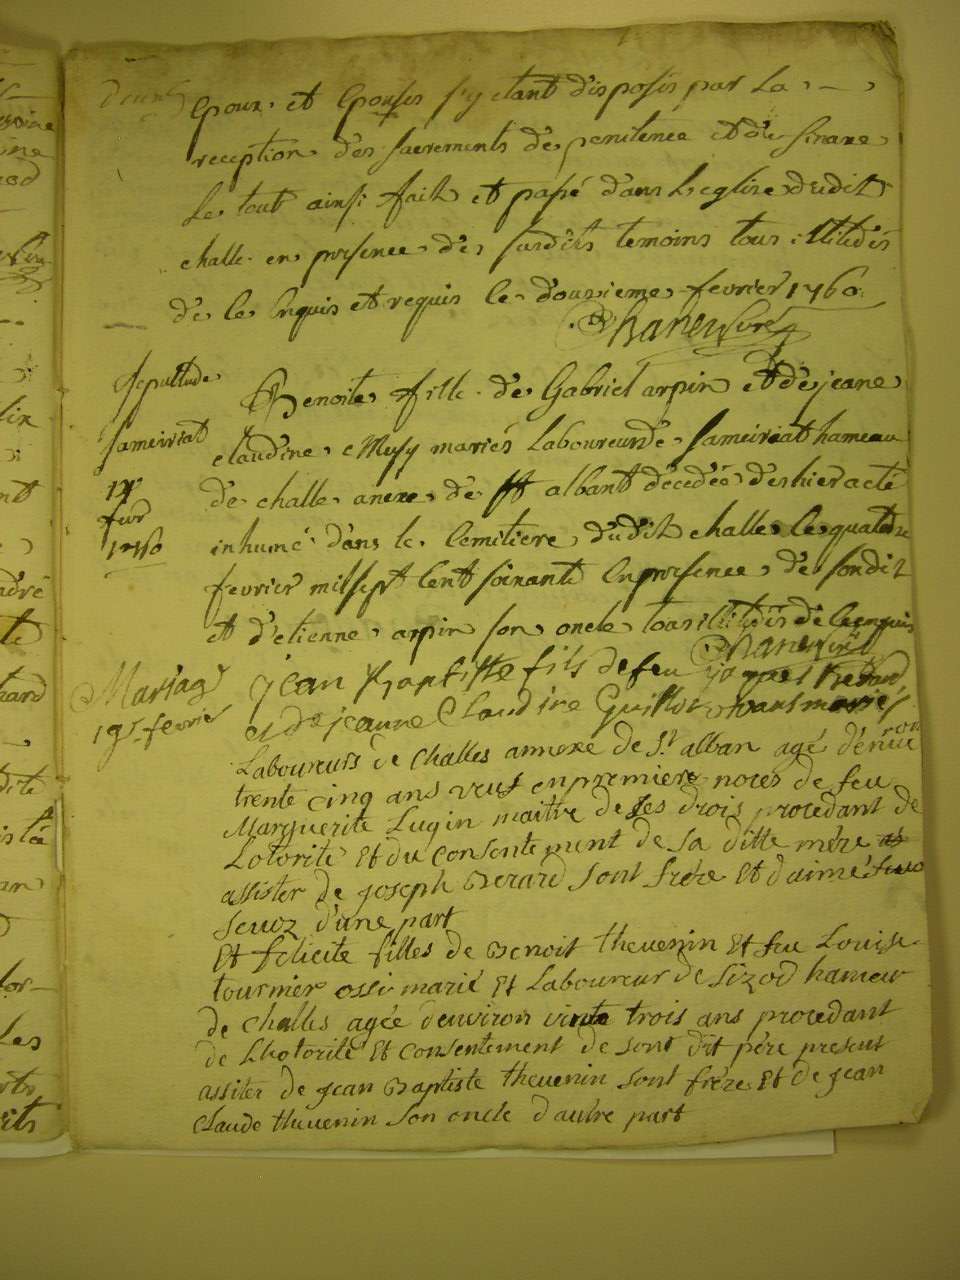 Epoux et Epouses s'y etant disposés par la
reception des sacrements de penitence et de sinaxe
le tout ainsi fait et passé dans l'eglise dudit
challe en presence des susdits temoins tous illitedés
de ce enquis et requis le douzieme fevrier 1760
Sepulture
Benoite fille de Gabriel arpin et de jeane
Sameiriat
claudine Musy mariés Laboureurs de sameiriat hameau
de challe anexe de st albant décedée des hier a eté
fevr
1760
inhumé dans le Cemitiere dudit challe le quatorze
fevrier mil sept Cent soixante En presence de sondit
et d'etienne arpin son oncle tous illitedés de ce enquis
Mariage
jean Baptiste fils de feu jaques Berard
19e fevrier
et de jeanne Claudine Guillot vivants mariés
Laboureurs de Challes annexe de St alban agé d'environ
trente cinq ans veuf en premiere noces de feu
Marguerite Lugin maitre de ses drois procedant de
Lotorite Et du Consentement de sa ditte mére
assister de joseph Berard sont frére Et d'aimé
Seuoz d'une part
Et felicite filles de Benoit thevenin Et feu Louise
tournier ossi marié Et Laboureur de Sizod hameur
de Challes agée d'environ vinte trois ans procedant
de Lhotorité Et Consentement de sont dit pére present
assiter de jean Baptiste thevenin sont frére Et de jean
Claude thevenin son oncle d'autre part